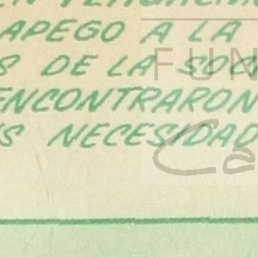 APEGO A LA
DE LA SOC
FUN
ENCONTRARON
S NECESIDAD
Ca